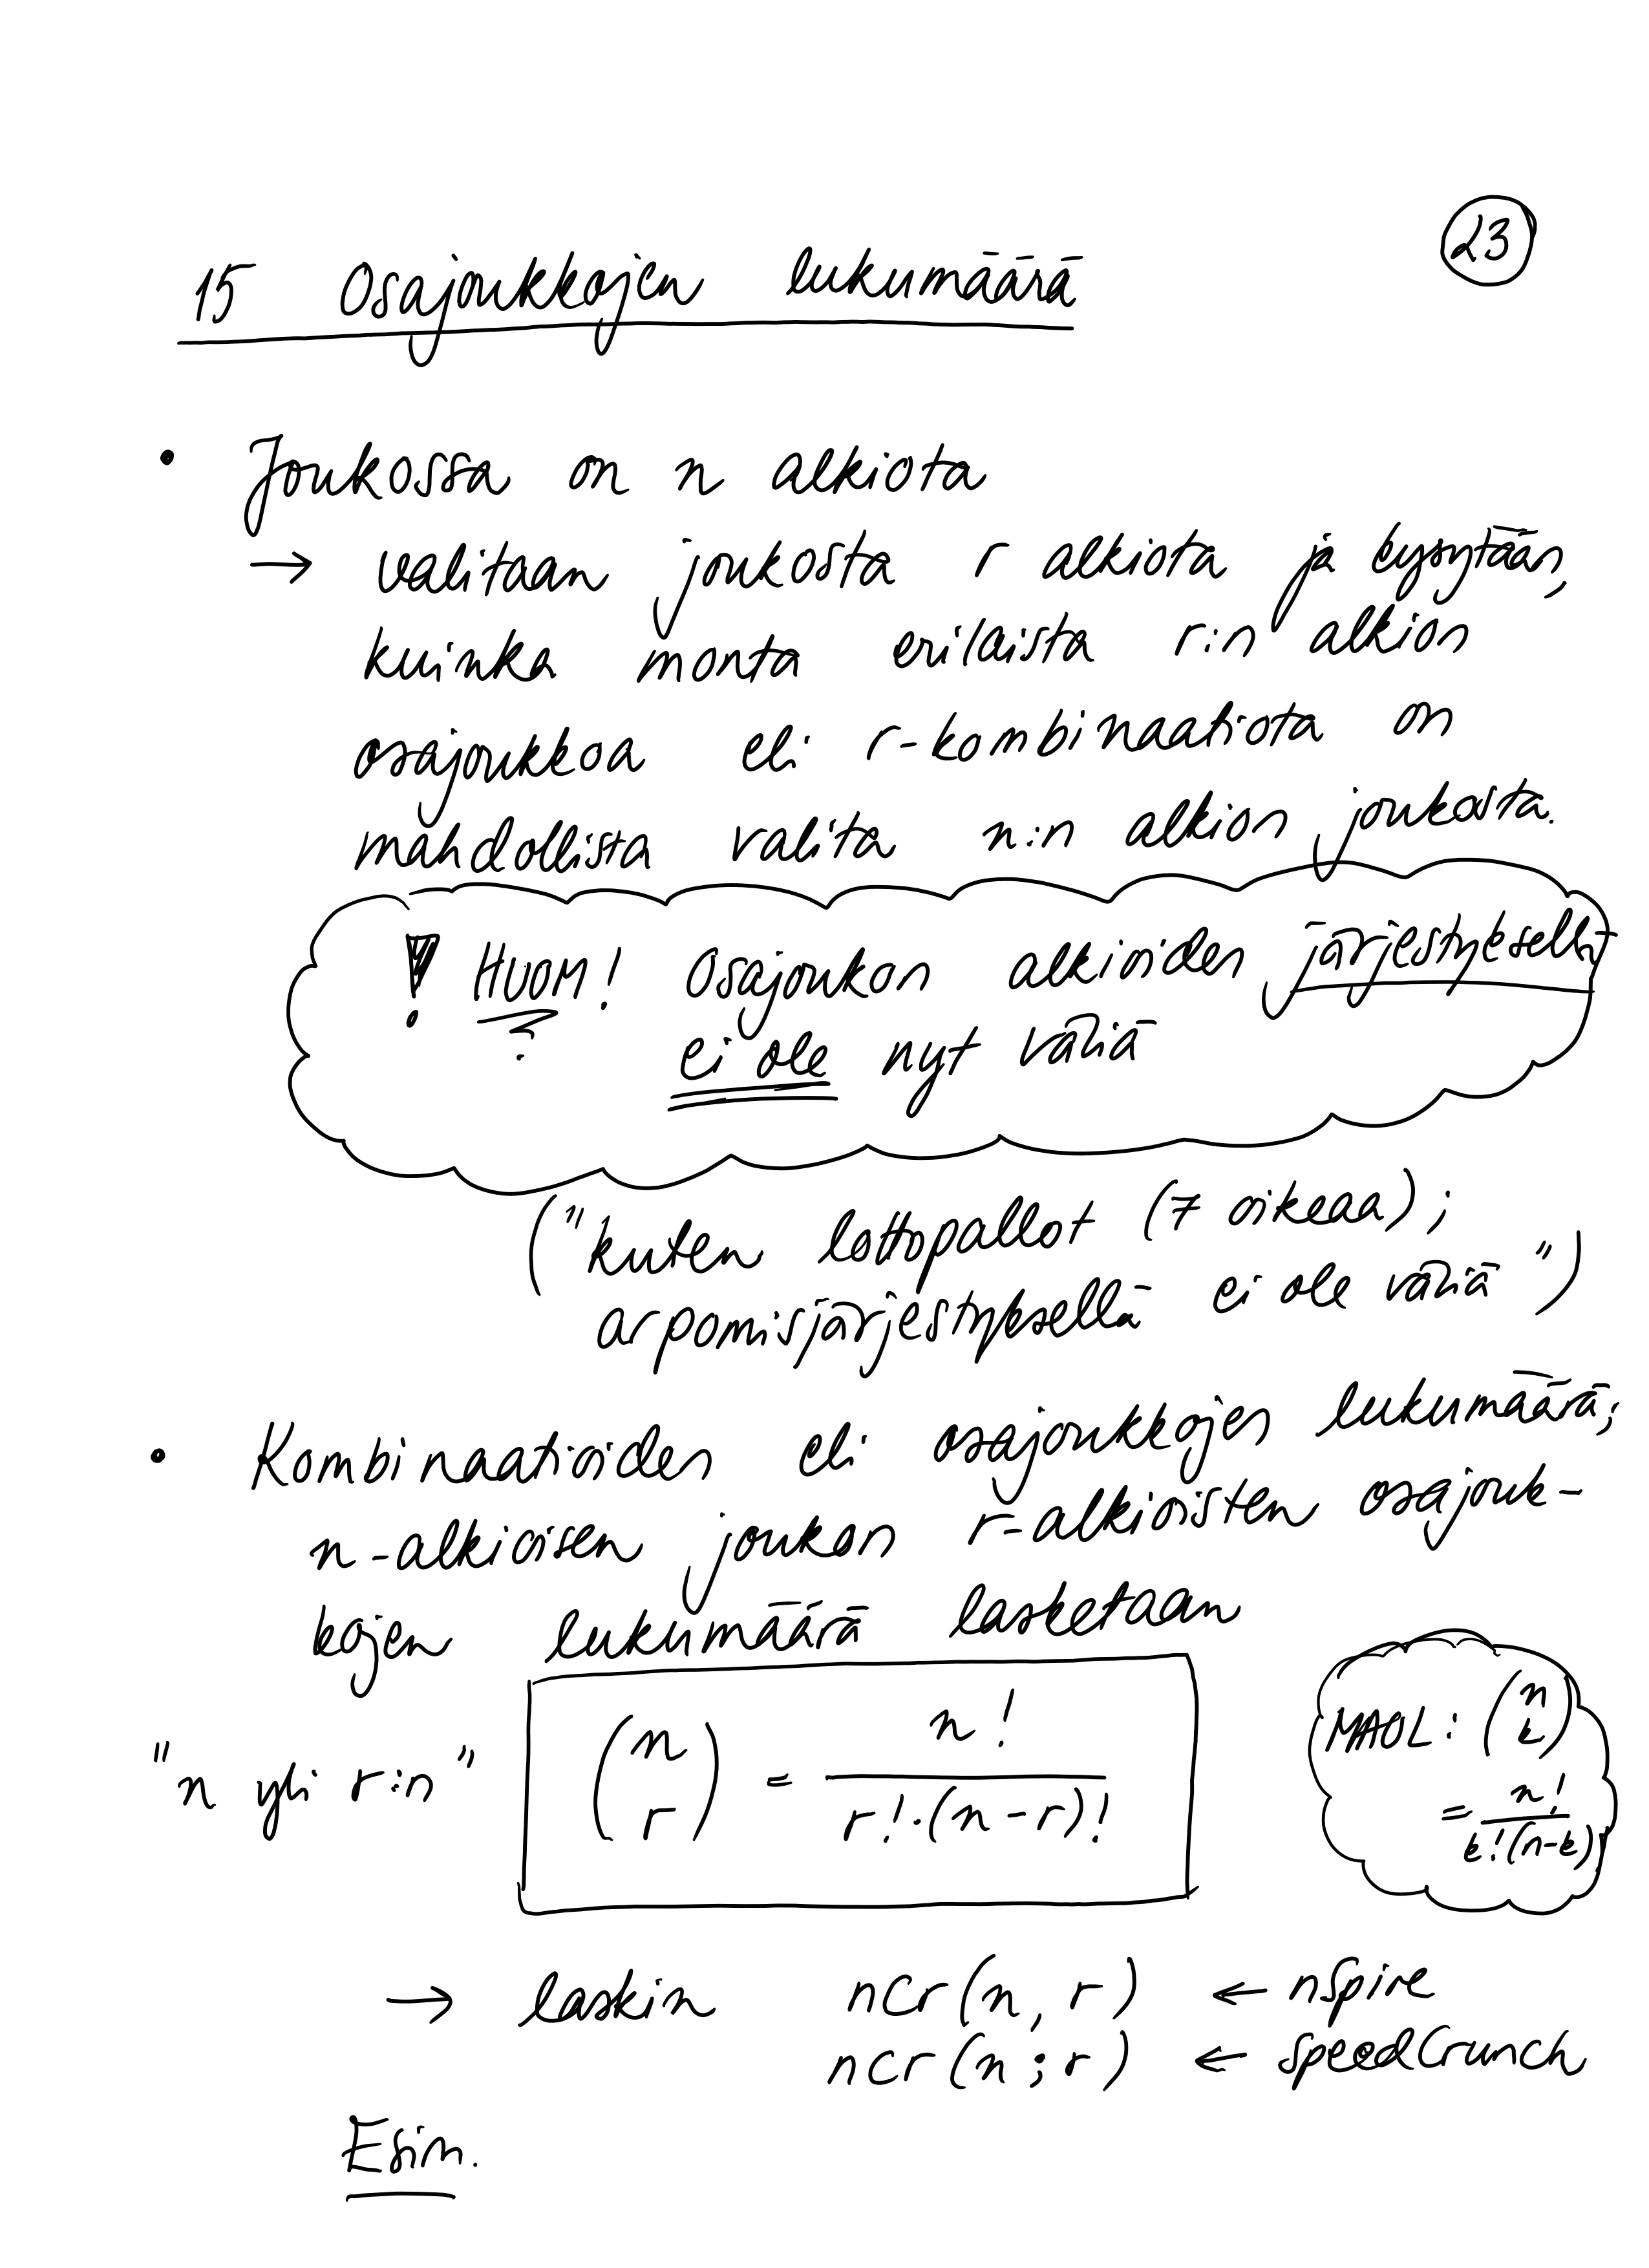 23
15 Osajoukkojen lukumäärä
• Joukossa on n alkiota
→ valitaan joukosta r alkiota ja kysytään,
kuinka monta erilaista r:n alkion
osajoukkoa eli r-kombinaatiota on
mahdollista valita n:n alkion joukosta.
! HUOM! Osajoukon alkioiden järjestyksellä
ei ole nyt väliä
("kuten lottopallot (7 oikeaa);
arpomisjärjestyksellä ei ole väliä")
• Kombinaatioiden eli osajoukkojen lukumäärä;
n-alkioisen joukon r-alkioisten osajouk-
kojen lukumäärä lasketaan
"n yli r:n" (n r) = n! / r!·(n-r)!
MAOL: (n k)
= n! / k!(n-k)!
→ laskin ncr(n, r) ← nspire
ncr(n; r) ← speedCrunch
Esim.